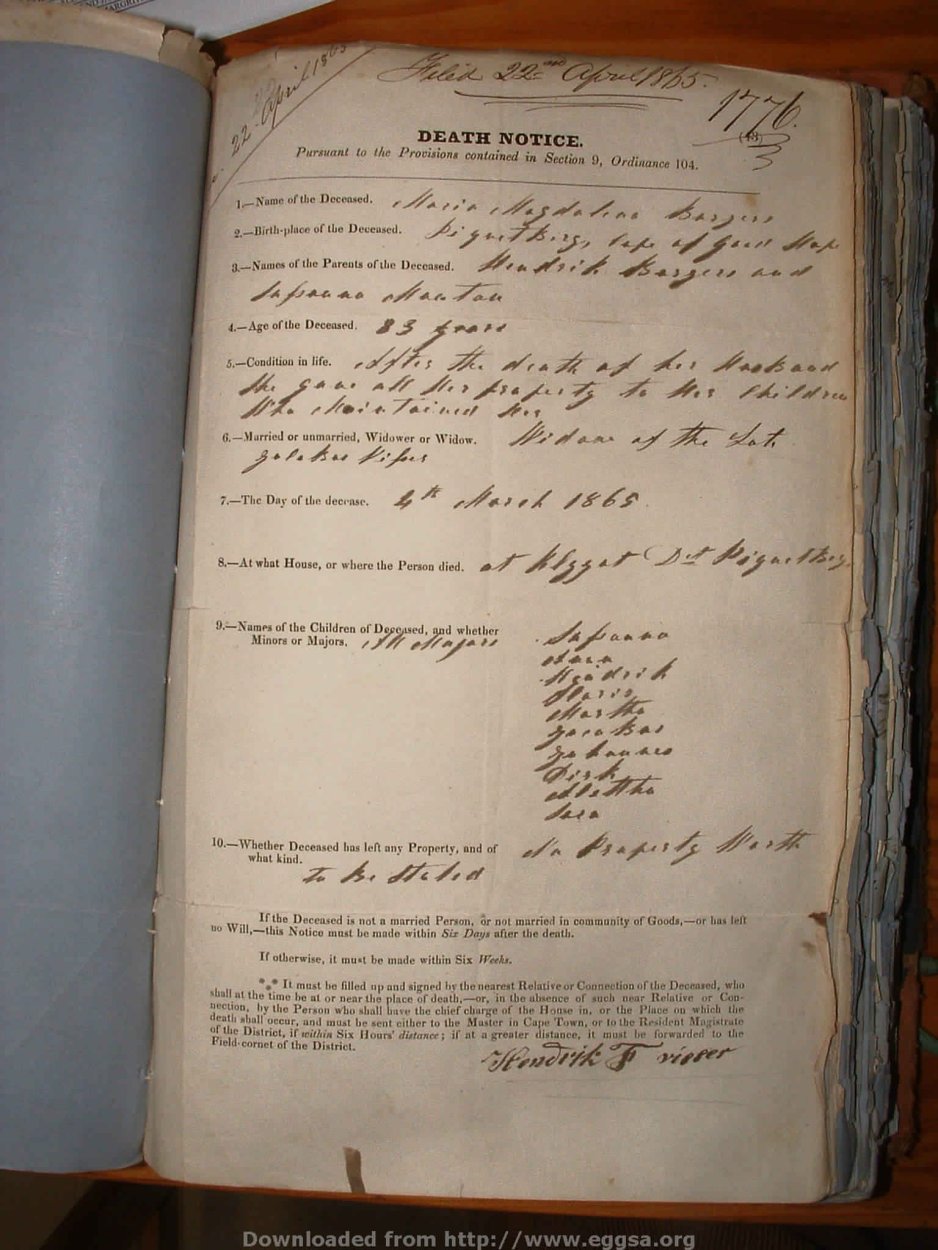 22 April 1865
Filed 22nd April 1865.
1776.
DEATH NOTICE.
Pursuant to the Provisions contained in Section 9, Ordinance 104.
1.—Name of the Deceased. Maria Magdalena Burgers
2.—Birth-place of the Deceased. Piquetberg, Cape of Good Hope
3.—Names of the Parents of the Deceased. Hendrik Burgers and
Susanna Mouton
4.—Age of the Deceased. 83 years
5.—Condition in life. After the death of her Husband
She gave all Her property to Her Children
Who Maintained Her
6.—Married or unmarried, Widower or Widow. Widow of the Late
Jacobus
7.—The Day of the decease. 4th March 1865
8.—At what House, or where the Person died. at Dist Piquetberg
9.—Names of the Children of Deceased, and whether
Minors or Majors. All Majors
Susanna
Anna
Hendrik
Maria
Martha
Jacobus
Johannes
Dirk
Aletta
Sara
10.—Whether Deceased has left any Property, and of
what kind. No Property Worth
to be Stated
If the Deceased is not a married Person, or not married in community of Goods,—or has left
no Will,—this Notice must be made within Six Days after the death.
If otherwise, it must be made within Six Weeks.
It must be filled up and signed by the nearest Relative or Connection of the Deceased, who
shall at the time be at or near the place of death,—or, in the absence of such near Relative or Con-
nection, by the Person who shall have the chief charge of the House in, or the Place on which the
death shall occur, and must be sent either to the Master in Cape Town, or to the Resident Magistrate
of the District, if within Six Hours' distance; if at a greater distance, it must be forwarded to the
Field-cornet of the District.
Hendrik F visser
Downloaded from http://www.eggsa.org